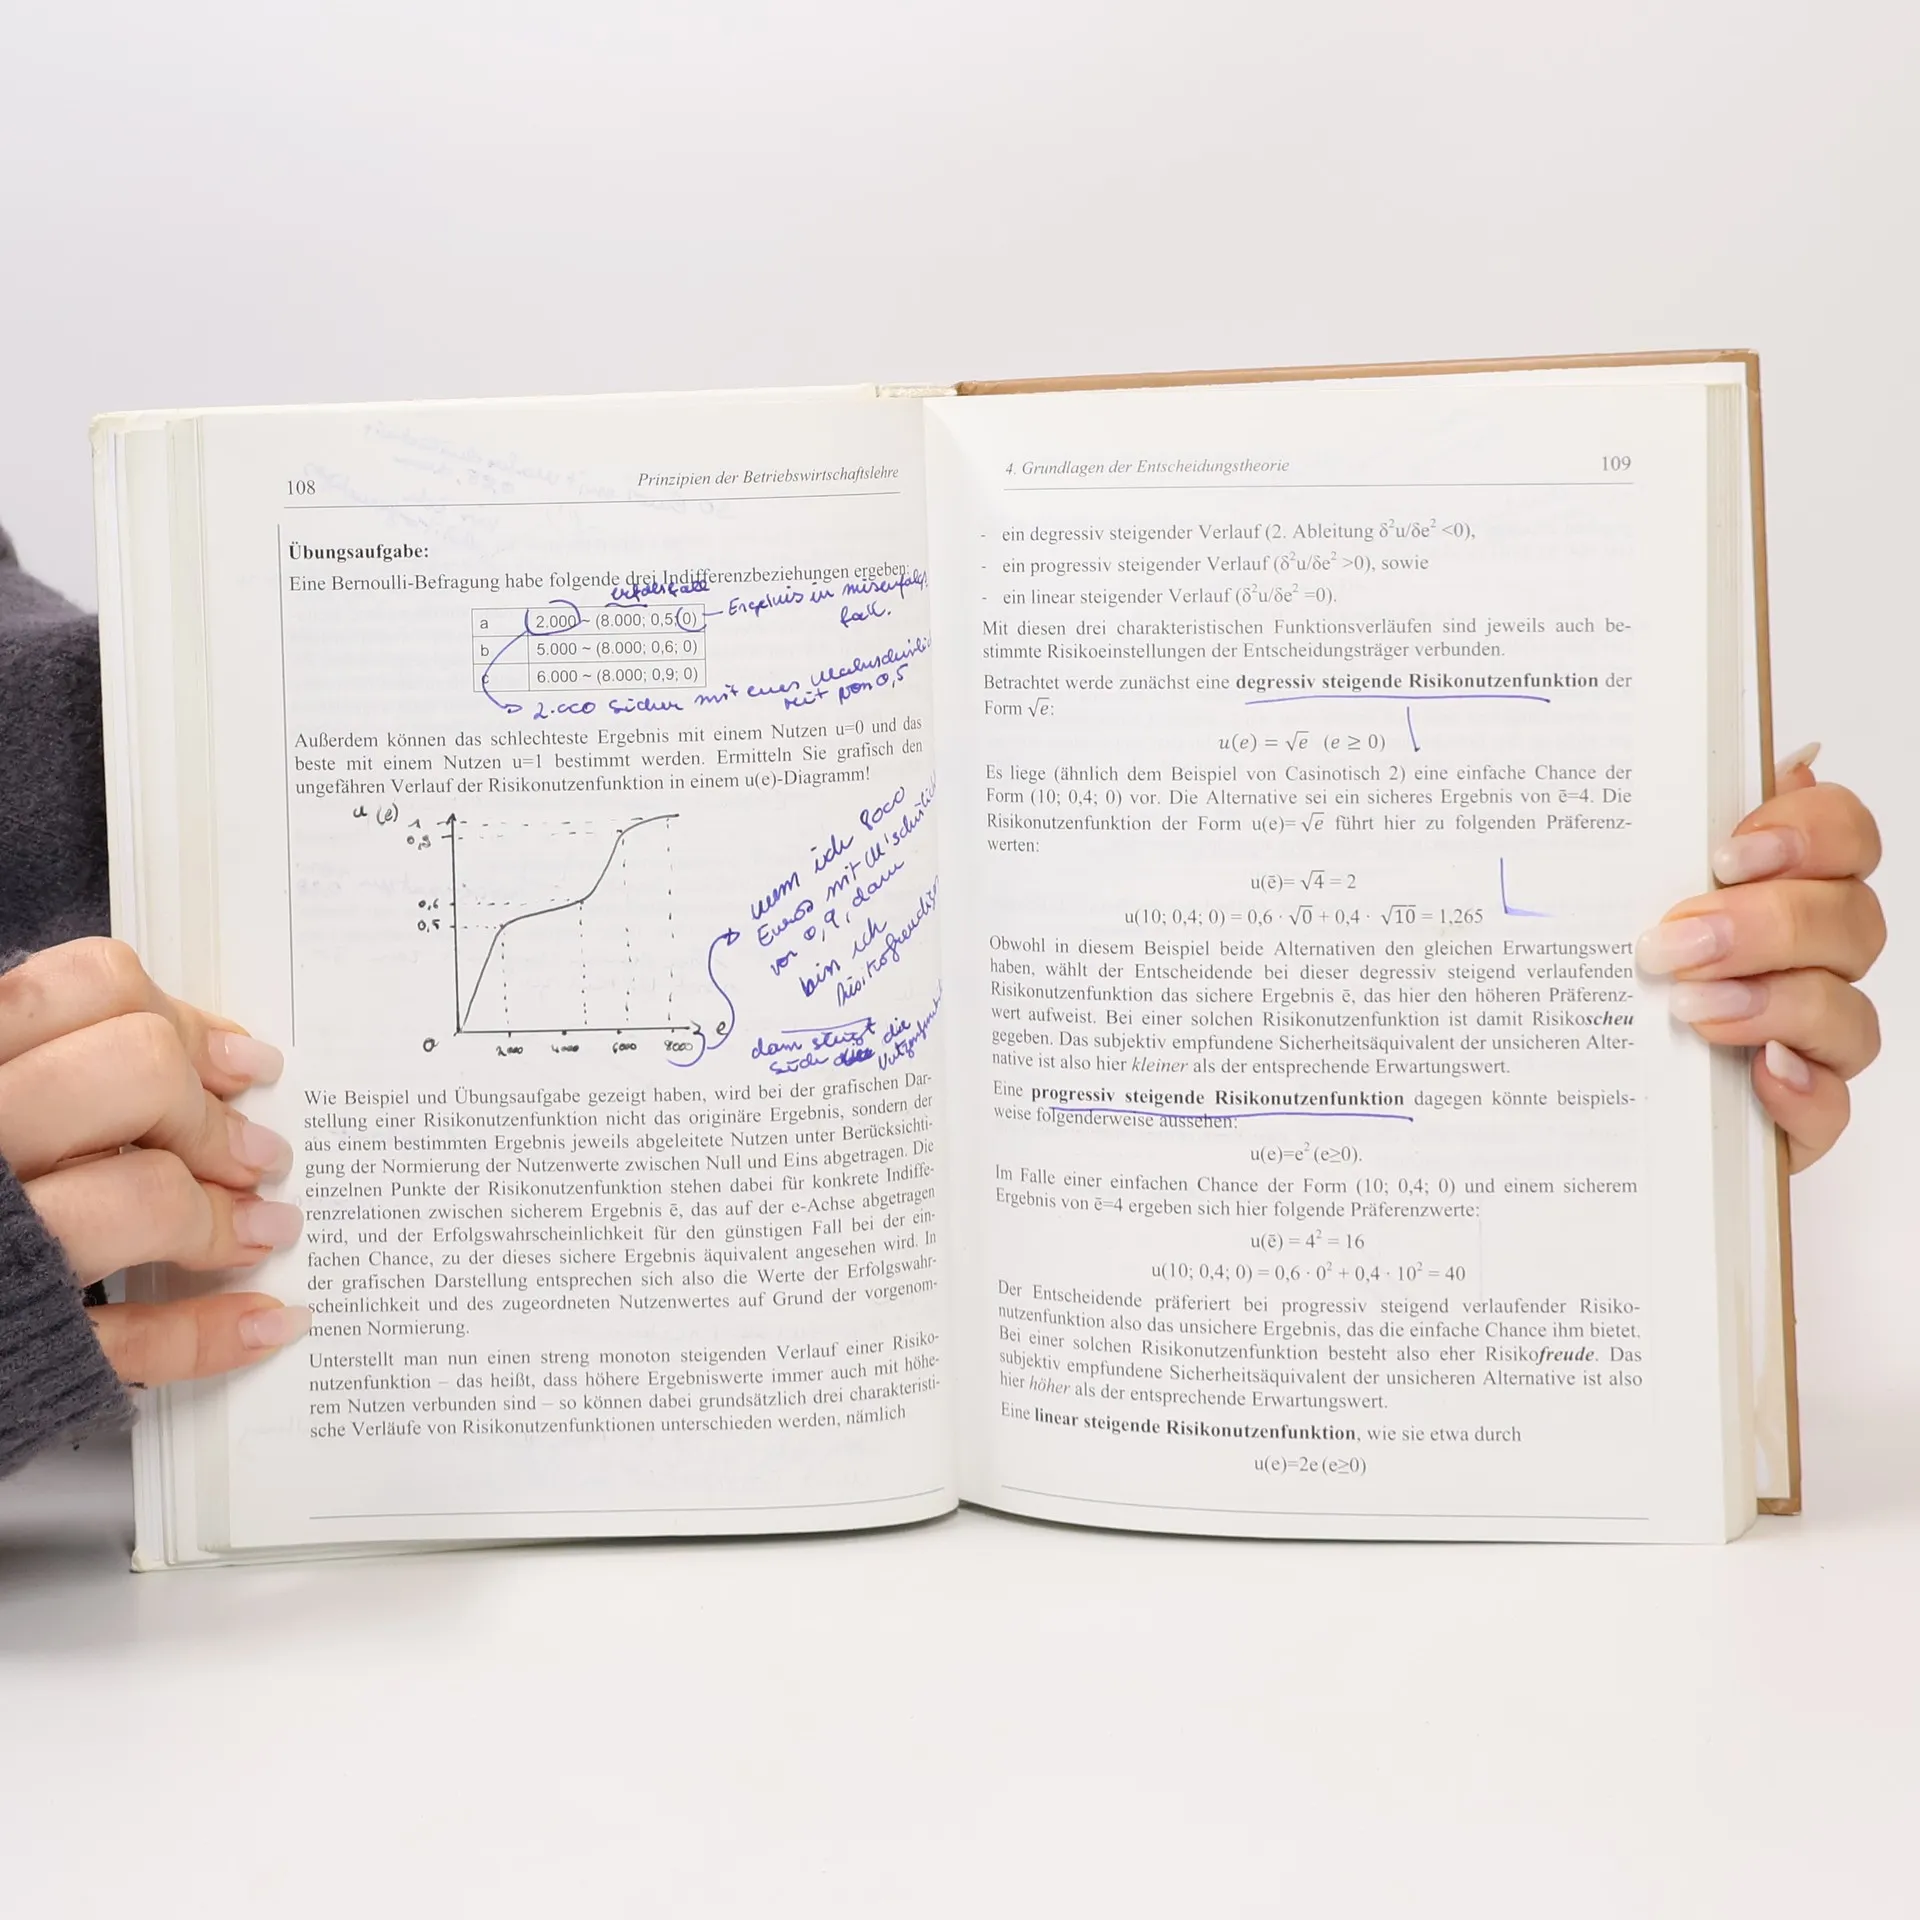 108
Prinzipien der Betriebswirtschaftslehre
Übungsaufgabe:
Eine Bernoulli-Befragung habe folgende drei Indifferenzbeziehungen ergeben:
a 2.000 ~ (8.000; 0,5; 0)
Ergebnis im
fall.
b 5.000 ~ (8.000; 0,6; 0)
c 6.000 ~ (8.000; 0,9; 0)
2.000 sicher mit einer
von 0,5
Außerdem können das schlechteste Ergebnis mit einem Nutzen u=0 und das
beste mit einem Nutzen u=1 bestimmt werden. Ermitteln Sie grafisch den
ungefähren Verlauf der Risikonutzenfunktion in einem u(e)-Diagramm!
u (e)
1
0,9
0,6
0,5
0
2000 4000 6000 8000 e
wenn ich 8000
Euros mit W'schein
von 0,9, dann
bin ich
dann steigt
sich die
Wie Beispiel und Übungsaufgabe gezeigt haben, wird bei der grafischen Dar-
stellung einer Risikonutzenfunktion nicht das originäre Ergebnis, sondern der
aus einem bestimmten Ergebnis jeweils abgeleitete Nutzen unter Berücksichti-
gung der Normierung der Nutzenwerte zwischen Null und Eins abgetragen. Die
einzelnen Punkte der Risikonutzenfunktion stehen dabei für konkrete Indiffe-
renzrelationen zwischen sicherem Ergebnis ē, das auf der e-Achse abgetragen
wird, und der Erfolgswahrscheinlichkeit für den günstigen Fall bei der ein-
fachen Chance, zu der dieses sichere Ergebnis äquivalent angesehen wird. In
der grafischen Darstellung entsprechen sich also die Werte der Erfolgswahr-
scheinlichkeit und des zugeordneten Nutzenwertes auf Grund der vorgenom-
menen Normierung.
Unterstellt man nun einen streng monoton steigenden Verlauf einer Risiko-
nutzenfunktion – das heißt, dass höhere Ergebniswerte immer auch mit höhe-
rem Nutzen verbunden sind – so können dabei grundsätzlich drei charakteristi-
sche Verläufe von Risikonutzenfunktionen unterschieden werden, nämlich
4. Grundlagen der Entscheidungstheorie
109
- ein degressiv steigender Verlauf (2. Ableitung δ²u/δe² <0),
- ein progressiv steigender Verlauf (δ²u/δe² >0), sowie
- ein linear steigender Verlauf (δ²u/δe² =0).
Mit diesen drei charakteristischen Funktionsverläufen sind jeweils auch be-
stimmte Risikoeinstellungen der Entscheidungsträger verbunden.
Betrachtet werde zunächst eine degressiv steigende Risikonutzenfunktion der
Form √e:
u(e) = √e (e ≥ 0)
Es liege (ähnlich dem Beispiel von Casinotisch 2) eine einfache Chance der
Form (10; 0,4; 0) vor. Die Alternative sei ein sicheres Ergebnis von ē=4. Die
Risikonutzenfunktion der Form u(e)= √e führt hier zu folgenden Präferenz-
werten:
u(ē)= √4 = 2
u(10; 0,4; 0) = 0,6 · √0 + 0,4 · √10 = 1,265
Obwohl in diesem Beispiel beide Alternativen den gleichen Erwartungswert
haben, wählt der Entscheidende bei dieser degressiv steigend verlaufenden
Risikonutzenfunktion das sichere Ergebnis ē, das hier den höheren Präferenz-
wert aufweist. Bei einer solchen Risikonutzenfunktion ist damit Risikoscheu
gegeben. Das subjektiv empfundene Sicherheitsäquivalent der unsicheren Alter-
native ist also hier kleiner als der entsprechende Erwartungswert.
Eine progressiv steigende Risikonutzenfunktion dagegen könnte beispiels-
weise folgenderweise aussehen:
u(e)=e² (e≥0).
Im Falle einer einfachen Chance der Form (10; 0,4; 0) und einem sicherem
Ergebnis von ē=4 ergeben sich hier folgende Präferenzwerte:
u(ē) = 4² = 16
u(10; 0,4; 0) = 0,6 · 0² + 0,4 · 10² = 40
Der Entscheidende präferiert bei progressiv steigend verlaufender Risiko-
nutzenfunktion also das unsichere Ergebnis, das die einfache Chance ihm bietet.
Bei einer solchen Risikonutzenfunktion besteht also eher Risikofreude. Das
subjektiv empfundene Sicherheitsäquivalent der unsicheren Alternative ist also
hier höher als der entsprechende Erwartungswert.
Eine linear steigende Risikonutzenfunktion, wie sie etwa durch
u(e)=2e (e≥0)